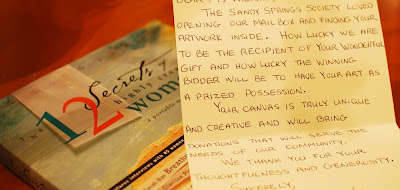 the
12 Secrets of
highly
women
a portable
THE SANDY SPRINGS SOCIETY LOVED
OPENING OUR MAILBOX AND FINDING YOUR
ARTWORK INSIDE. HOW LUCKY WE ARE
TO BE THE RECIPIENT OF YOUR WONDERFUL
GIFT AND HOW LUCKY THE WINNING
BIDDER WILL BE TO HAVE YOUR ART AS
A PRIZED POSSESSION.
YOUR CANVAS IS TRULY UNIQUE
AND CREATIVE AND WILL BRING
DONATIONS THAT WILL SERVE THE
NEEDS OF OUR COMMUNITY.
WE THANK YOU FOR YOUR
THOUGHTFULNESS AND GENEROSITY.
SINCERELY,